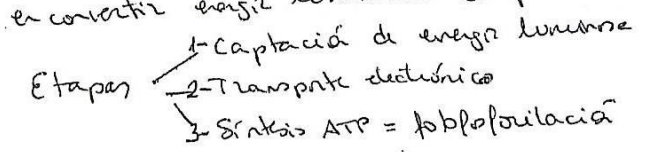 en convertir energía
1- Captació de energia luminosa
Etapas
2- Transporte electrónico
3- Síntesis ATP = fotofosforilació